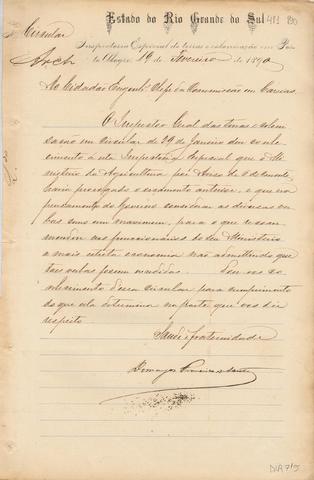 Estado do Rio Grande do Sul
Circular
Inspectoria Especial de terras e colonisação em Por-
to Alegre 19 de Fevereiro de 1890
Arch
Ao Cidadão Engenhº Chefe da Commissão em Caxias
O Inspector Geral das terras e coloni-
sação em circular de 29 de Janeiro deu conhe-
cimento á esta Inspectoria Especial que o Mi-
nisterio da Agricultura por Aviso de
havia prorogado o orçamento anterior, e que era
pensamento do Governo considerar as diversas ver-
bas como um maximum, para o que recom-
menda aos funccionarios do seu Ministerio
a mais estricta economia não admittindo que
taes verbas fossem excedidas. Dou vos co-
nhecimento d'essa circular para cumprimento
do que ella determina na parte que vos diz
respeito
Saude e fraternidade
DVA 715